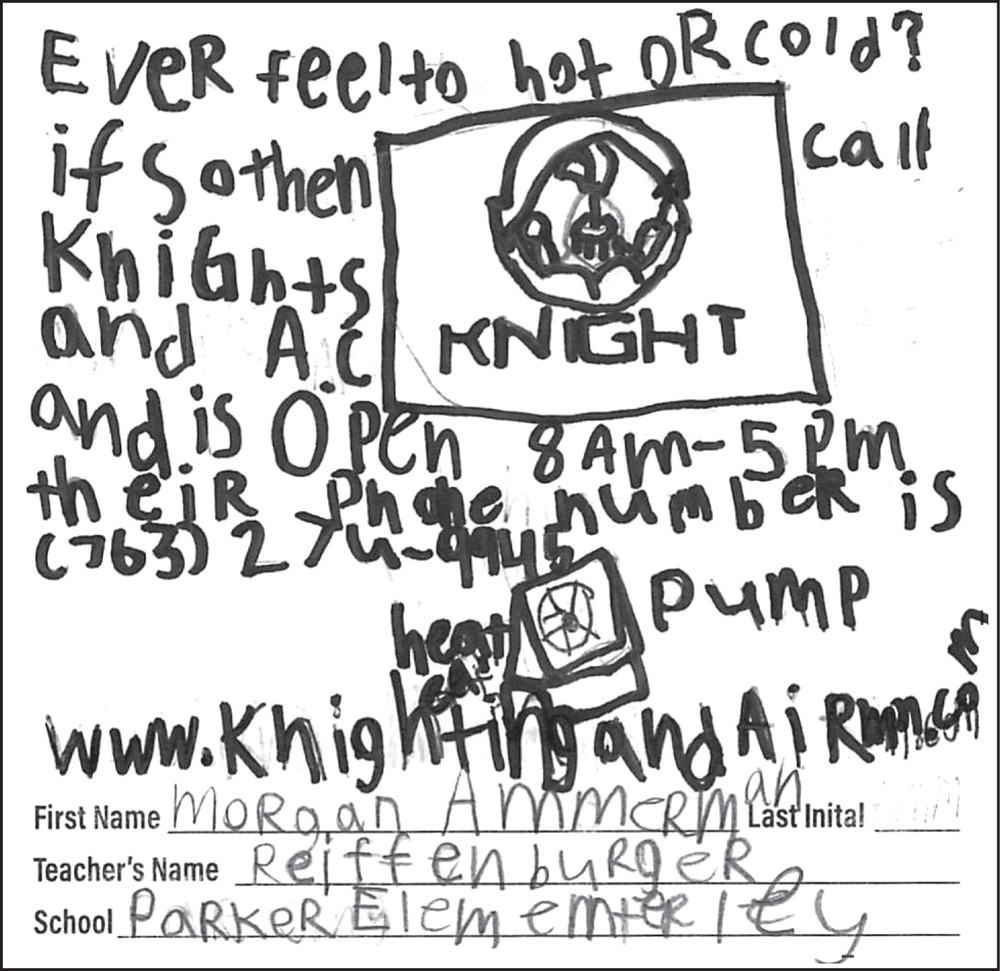 EveR feel to hot OR cold?
if so then call
KniGhts
KNIGHT
and A.C
and is Open 8 Am-5 Pm
theiR Phone number is
(763) 274-9945
heat pump
heat
www.Knightingand AiRmn.com
First Name MoRgan AmmeRman Last Inital
Teacher's Name ReiffenbuRgeR
School PaRkeR Elementerley